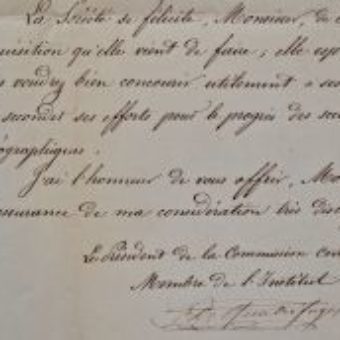 La Société se félicite, Monsieur, de
uisition qu'elle vient de faire; elle esp
voudrez bien concourir utilement a ses
seconder ses efforts pour le progrès des sci
ographiques.
J'ai l'honneur de vous offrir, Mo
ssurance de ma considération très dis
Le Président de la Commission cen
Membre de l'Institut